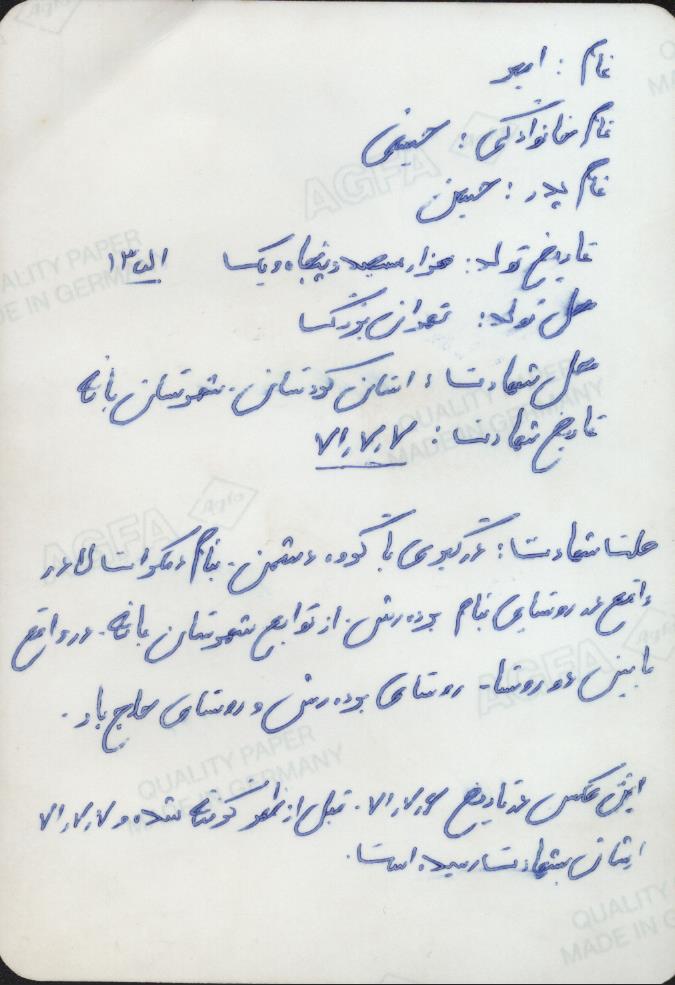 نام : امیر
نام خانوادگی : حسینی
نام پدر : حسین
تاریخ تولد : هزار سیصد و پنجاه و یک ۱۳۵۱
محل تولد : تهران بزرگ
محل شهادت : استان کردستان . شهرستان بانه
تاریخ شهادت : ۷۱٫۷٫۷
علت شهادت : درگیری با گروه دشمن . بنام دمکرات
واقع در روستای بنام بوده رش . از توابع شهرستان بانه . در واقع
ما بین دو روستا - روستای بوده رش و روستای
این عکس در تاریخ ۷۱٫۷٫۶ . قبل از ظهر گرفته شده و ۷۱٫۷٫۷
ایشان بشهادت رسیده است .
AGFA
QUALITY PAPER
MADE IN GERMANY